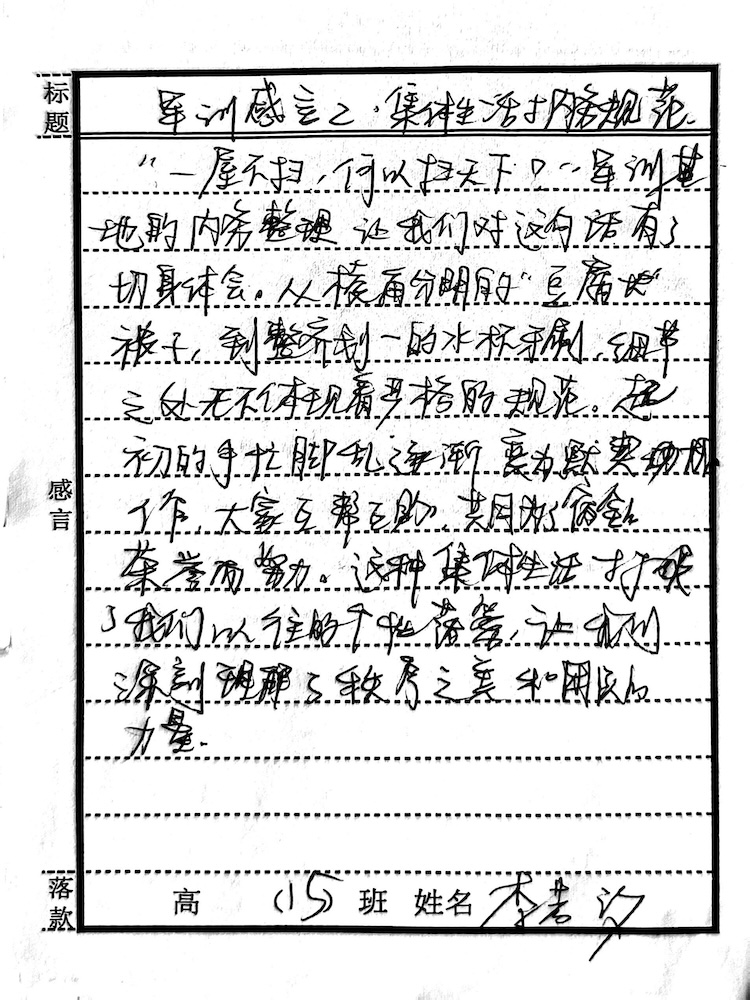 标题
军训感言之：集体生活与内务规范
“一屋不扫，何以扫天下？”军训基
地的内务整理让我们对这句话有了
切身体会。从棱角分明的“豆腐块”
被子，到整齐划一的水杯牙刷，细节
之处无不体现着严格的规范。起
初的手忙脚乱逐渐变为默契协
作，大家互帮互助，共同为了宿舍
荣誉而努力。这种集体生活打破
了我们以往的个性落，让我们
深刻理解了秩序之美和团结的
力量。
感言
落款
高 (15) 班 姓名 李若汐